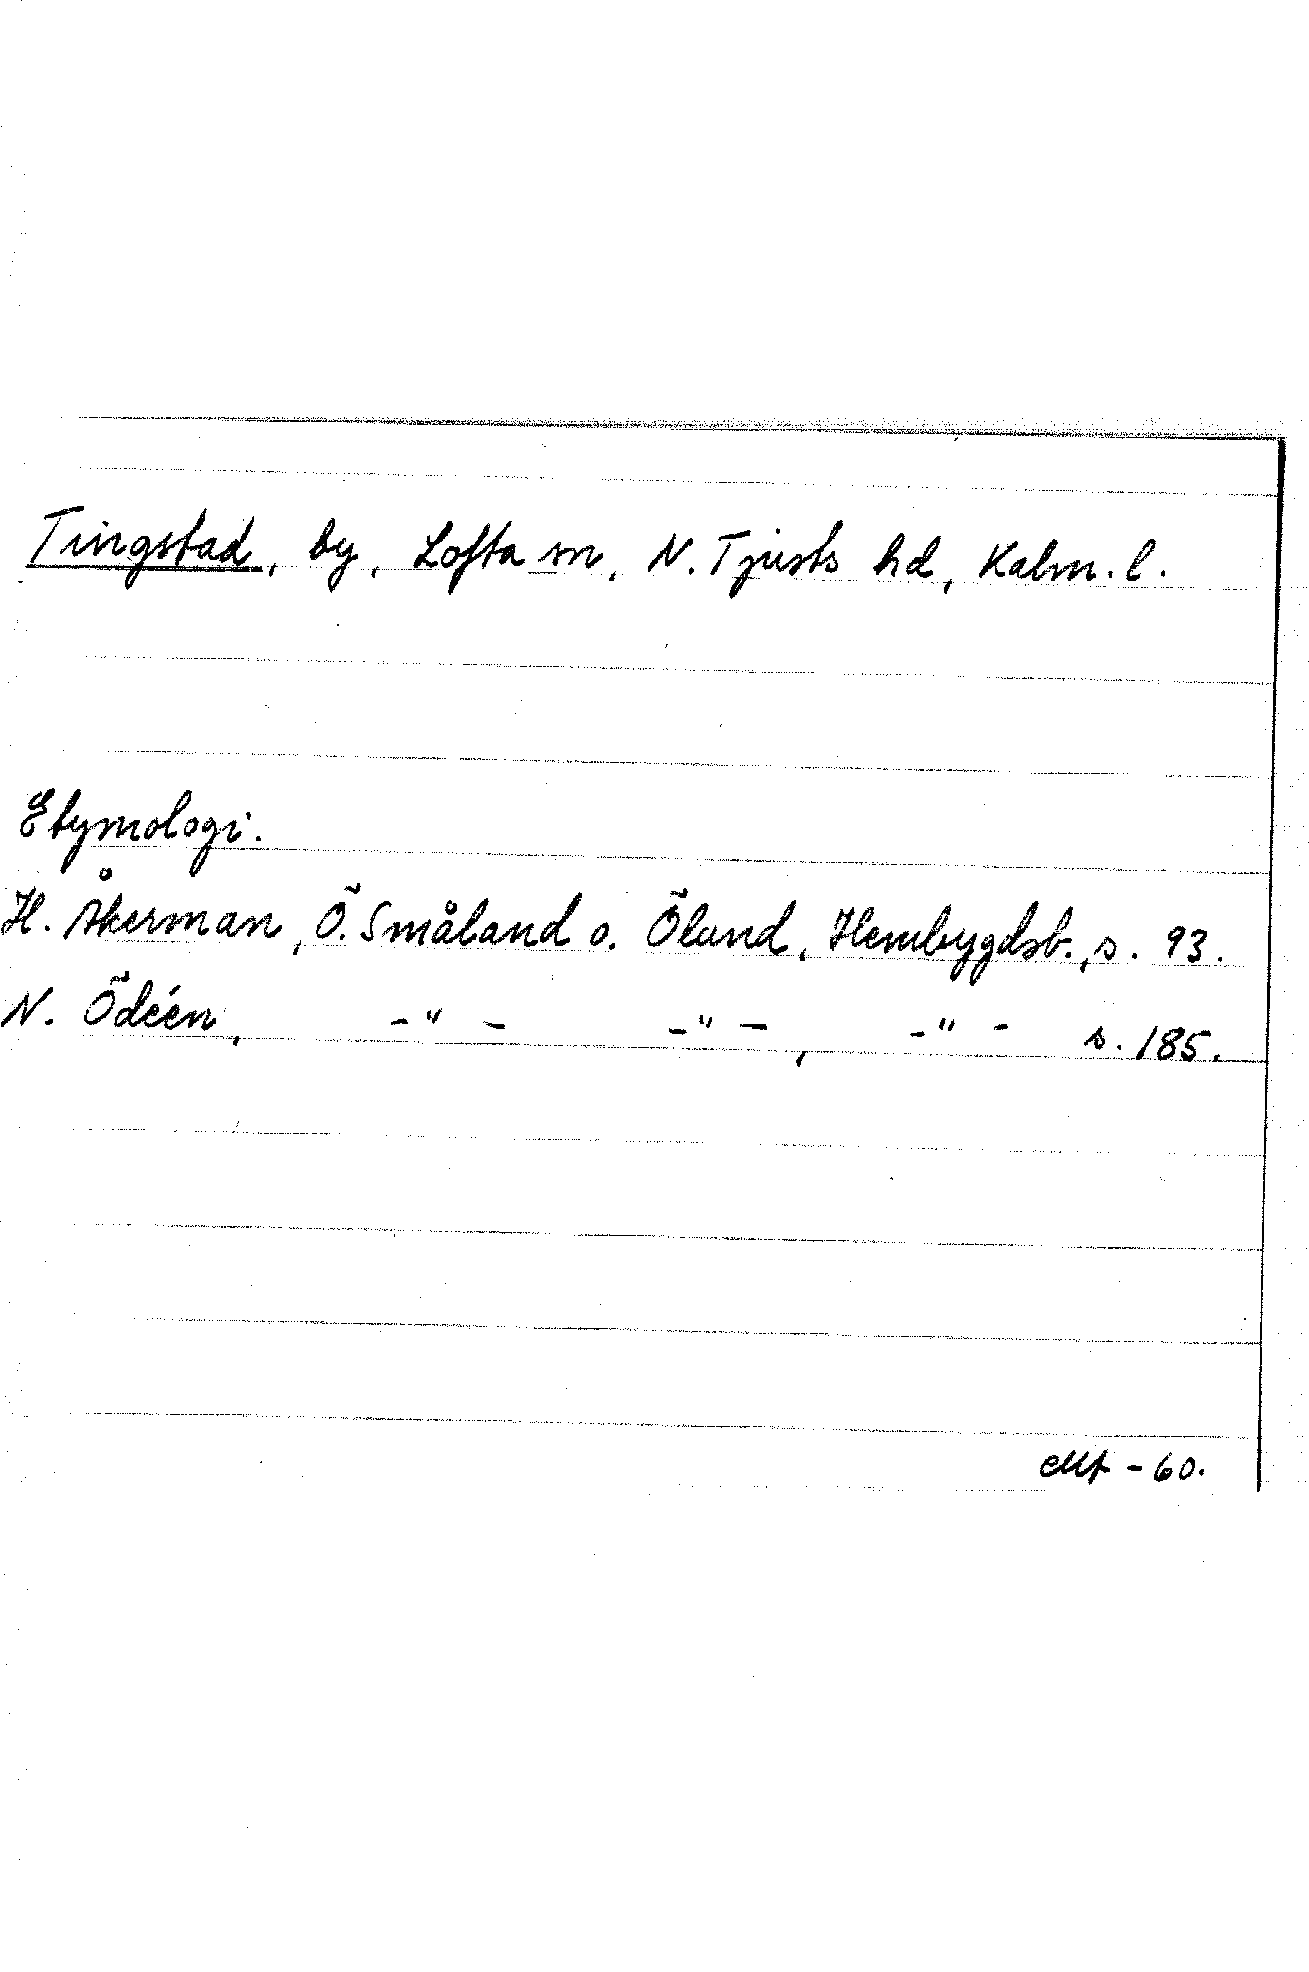 Tingstad, by, Lofta sn, N. Tjusts hd, Kalm. l.
Etymologi.
H. Åkerman, Ö. Småland o. Öland, Hembygdsb., s. 93.
N. Ödéen, -"- -"-, -"- s. 185.
-60.